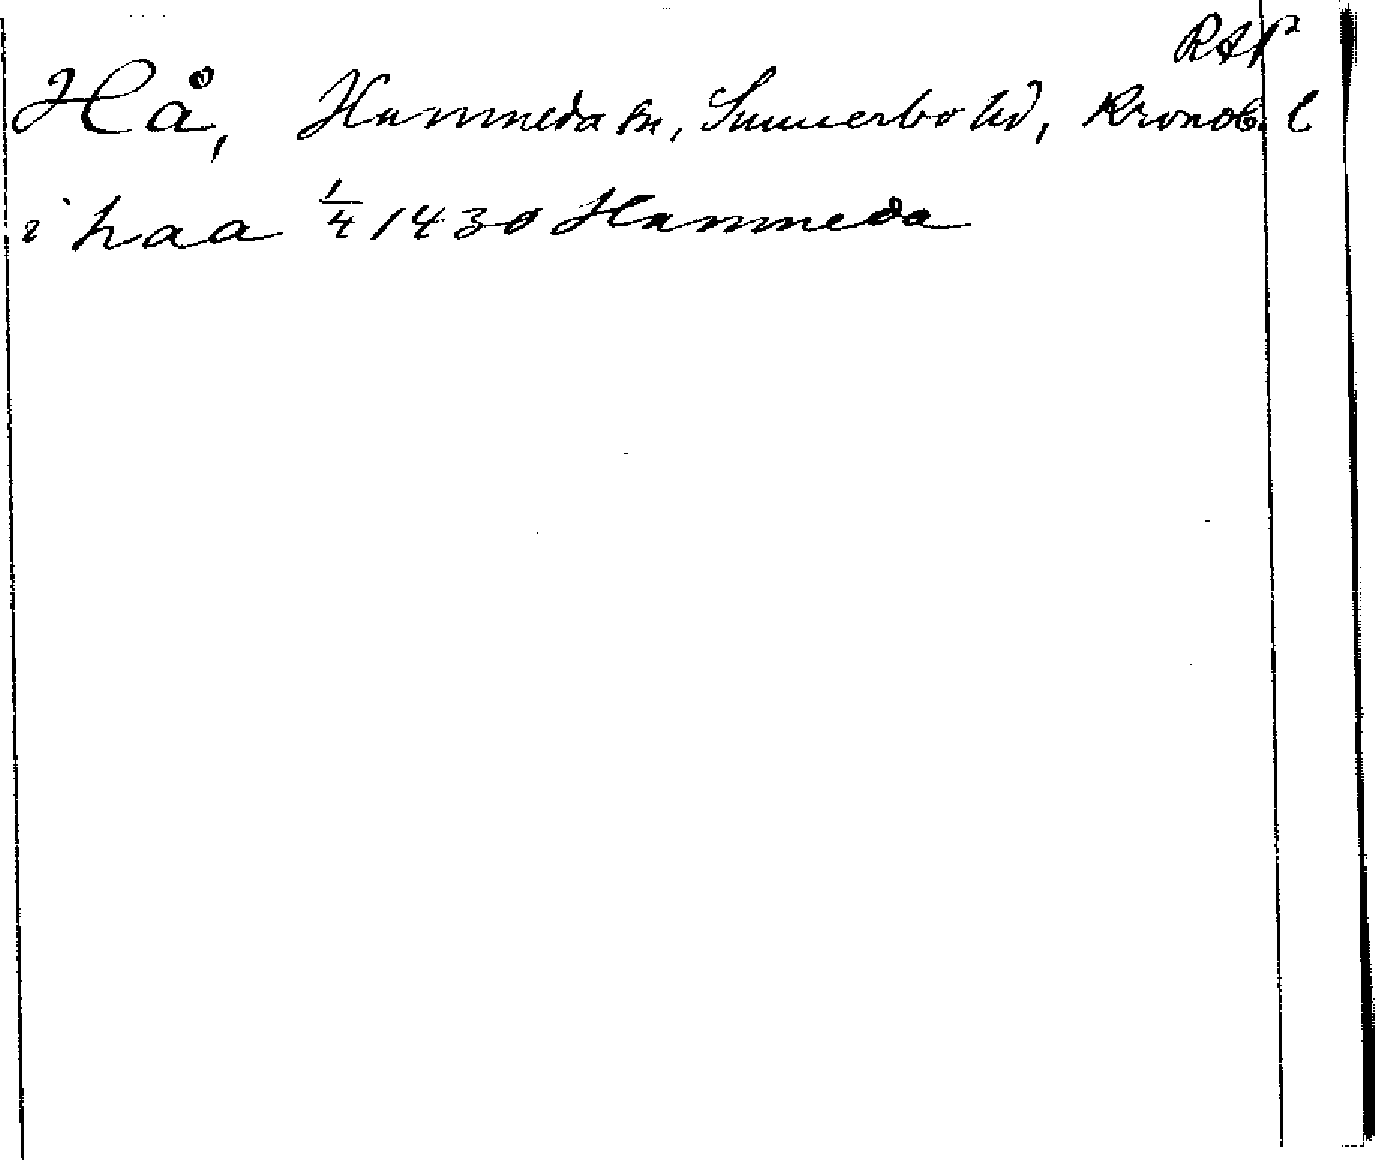 RAP
Hå, Hamneda sn, Sunnerbo hd, Kronob. l
i haa 1/4 1430 Hamneda